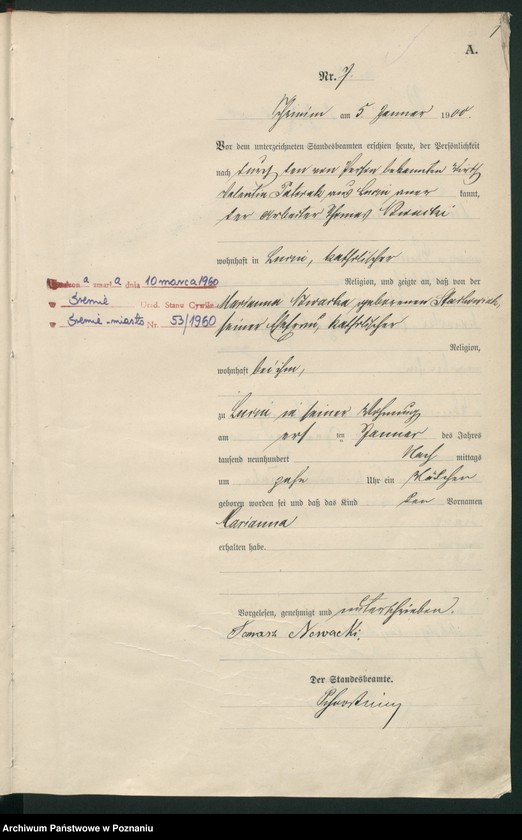 1
A.
Nr. 7.
Schrimm am 5. Januar 1900.
Vor dem unterzeichneten Standesbeamten erschien heute, der Persönlichkeit
nach durch den von Person bekannten Wirth
Valentin aus kannt,
der Arbeiter Thomas Nowacki
wohnhaft in katholischer
Religion, und zeigte an, daß von der
Marianna Nowacka geborenen
seiner Ehefrau, katholischer
Religion,
wohnhaft bei ihm,
zu in seiner Wohnung
am ersten Januar des Jahres
tausend neunhundert Nachmittags
um zehn Uhr ein Mädchen
geboren worden sei und daß das Kind den Vornamen
Marianna
erhalten habe.
Vorgelesen, genehmigt und unterschrieben.
Tomasz Nowacki.
Der Standesbeamte.
a zmarła dnia 10 marca 1960
w Śremie Urząd Stanu Cywiln.
w Śremie-miasto Nr. 53/1960
Archiwum Państwowe w Poznaniu